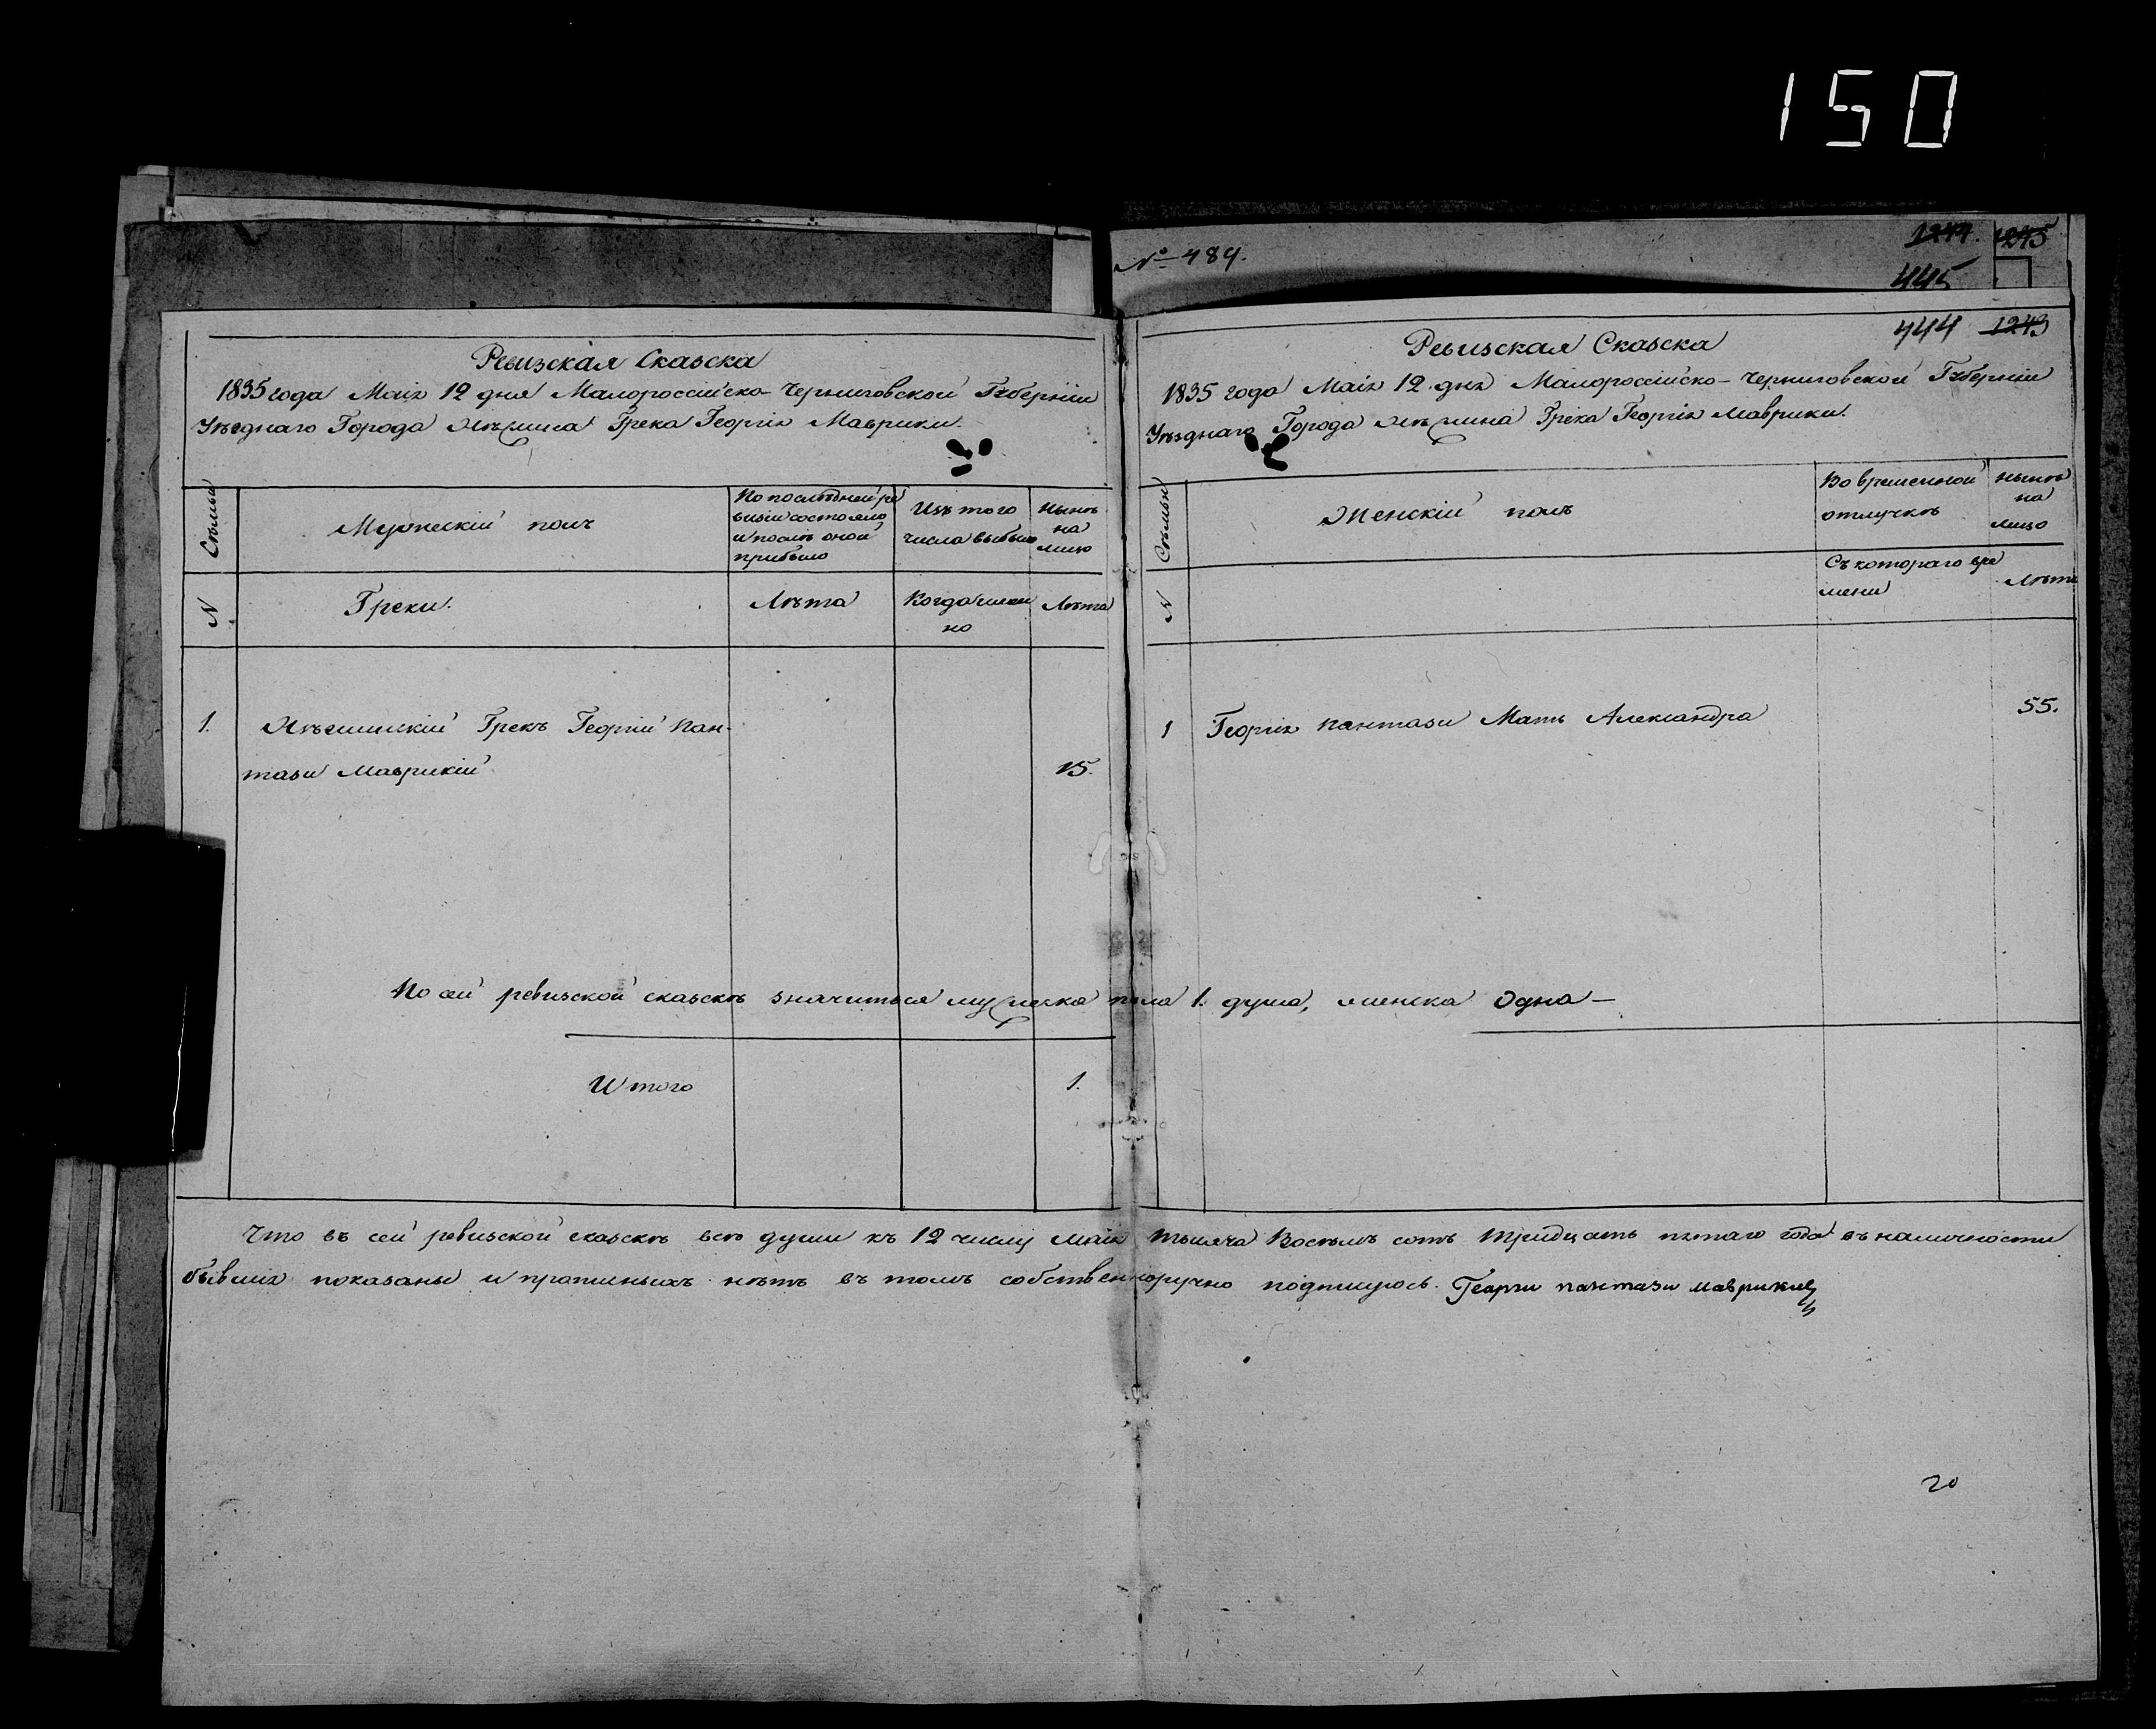 150
№ 489.
1244. 1245
445
Ревизская Сказска
1835 года Маія 12 дня Малороссійско-Черниговской Губерніи
Уѣзднаго Города Нѣжина Грека Георгія Маврики.
Сѣмьи
Мужескій полъ
По послѣдней ре
визіи состояло
и послѣ оной
прибыло
Изъ того
числа выбыло
Нынѣ
на
лицо
N
Греки.
Лѣта
Когда имен
но
Лѣта
1.
Нѣжинскій Грекъ Георгій Пан-
тази Маврикій
15.
444 1243
Ревизская Сказска
1835 года Маія 12 дня Малороссійско-Черниговской Губерніи
Уѣзднаго Города Нѣжина Грека Георгія Маврики.
Сѣмьи
Женскій полъ
Во временной
отлучкѣ
Нынѣ
на
лицо
N
Съ котораго вре
мени
Лѣта
1
Георгія Пантази Мать Александра
55.
По сей ревизской сказскѣ значиться мужеска пола 1. душа, женска одна —
Итого
1.
Что въ сей ревизской сказскѣ всѣ души къ 12 числу Маія тысяча Восѣмъ сотъ тридцать пятаго года въ наличности
бывшія показаны и прописныхъ нѣтъ въ томъ собственноручно подпишуюсь. Георги пантази маврикий
20